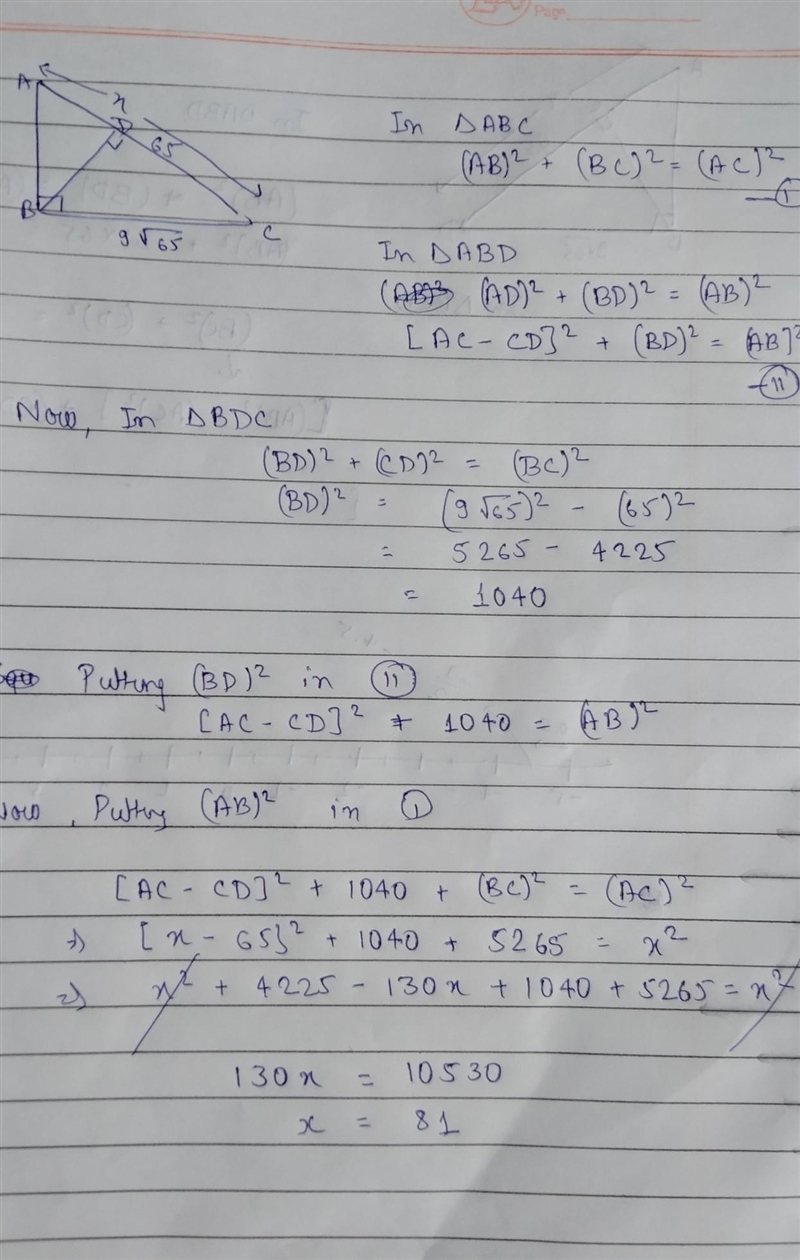 Page
A
x
D
65
B
C
9√65
In ΔABC
(AB)² + (BC)² = (AC)²
— I
In ΔABD
(AD)² + (BD)² = (AB)²
[AC - CD]² + (BD)² = (AB]²
— II
Now, In ΔBDC
(BD)² + (CD)² = (BC)²
(BD)² = (9√65)² - (65)²
= 5265 - 4225
= 1040
Putting (BD)² in II
[AC - CD]² + 1040 = (AB)²
Now, Putting (AB)² in I
[AC - CD]² + 1040 + (BC)² = (AC)²
⇒ [x - 65]² + 1040 + 5265 = x²
⇒ x² + 4225 - 130x + 1040 + 5265 = x²
130x = 10530
x = 81